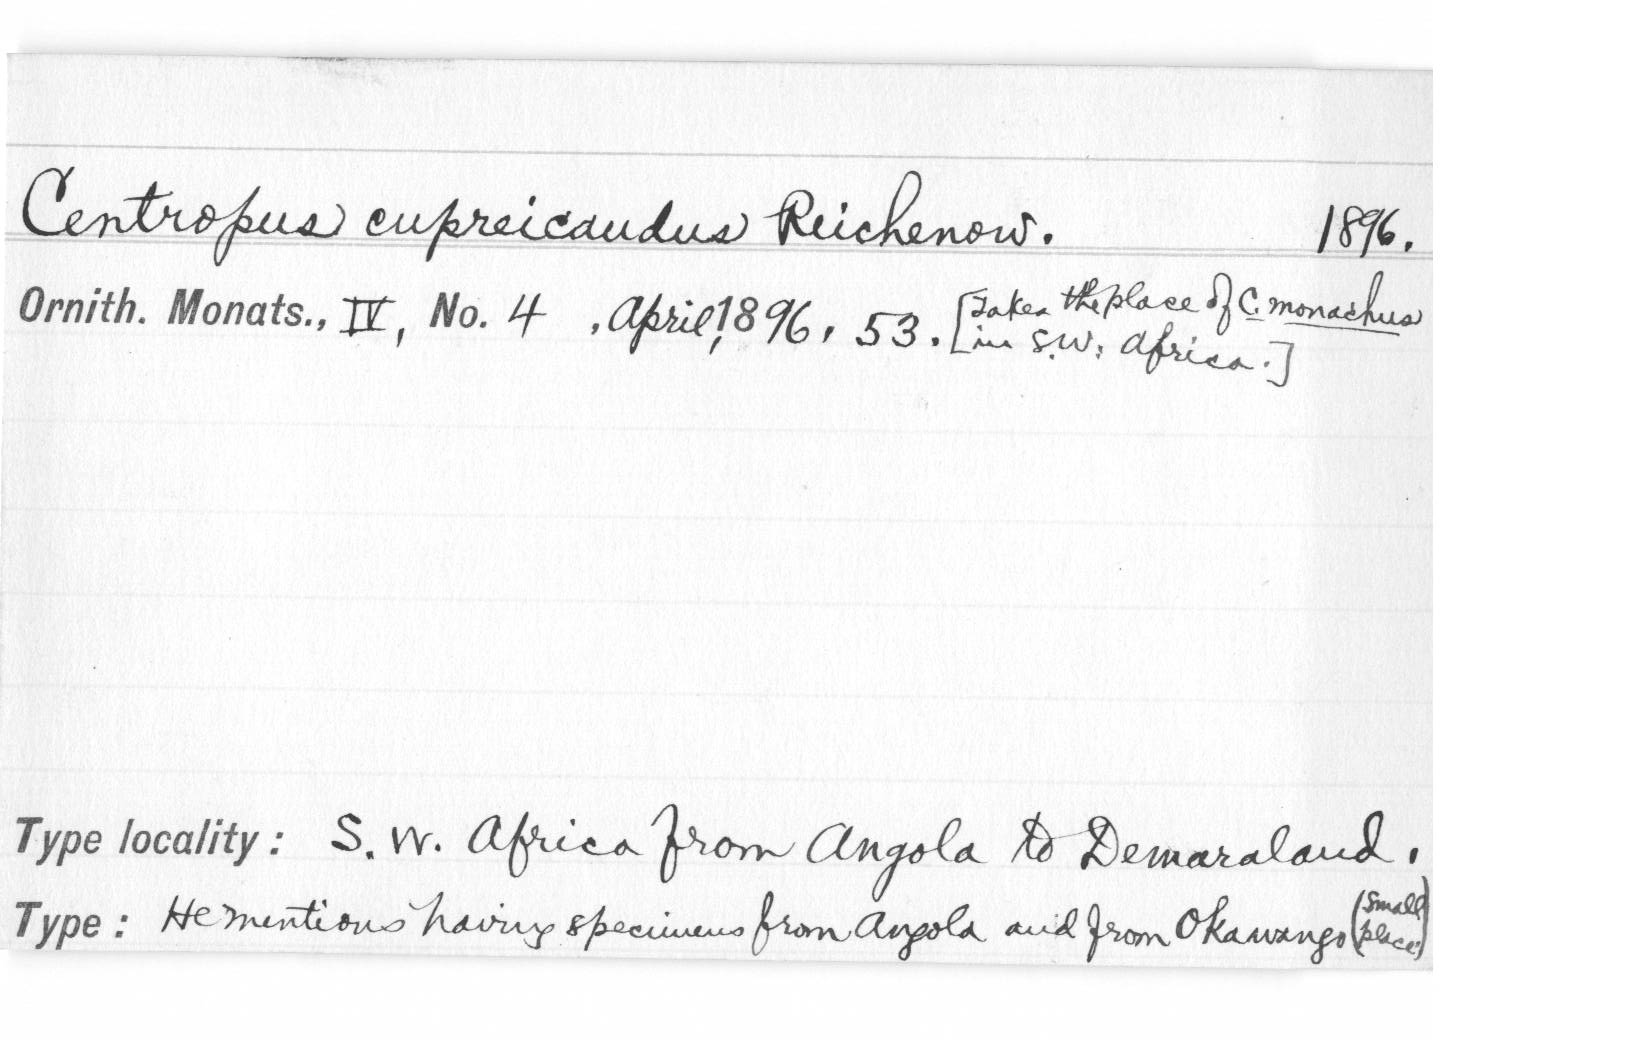 Centropus cupreicaudus Reichenow. 1896.
Ornith. Monats., IV, No. 4 , April, 1896, 53. [Takes the place of C. monachus
in S.W. Africa.]
Type locality: S. W. Africa from Angola to Demaraland.
Type: He mentions having specimens from Angola and from Okawango (Small
place)